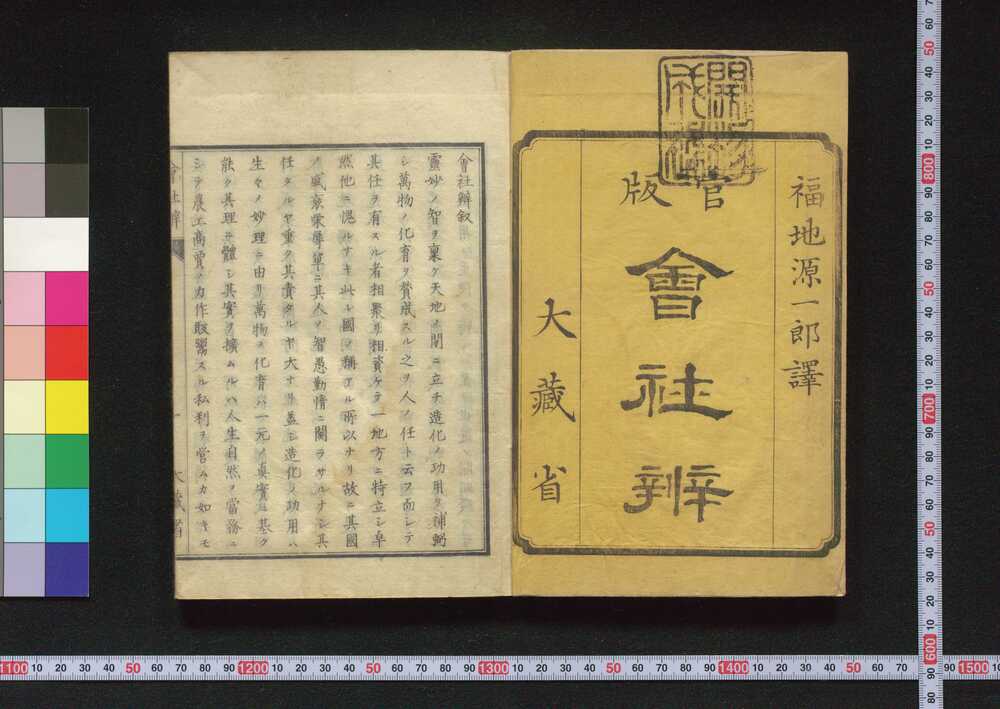 福地源一郎譯
官版
會社辨
大藏省
會社辨叙
靈妙ノ智ヲ稟ケ天地ノ間ニ立チ造化ノ功用ヲ補弼
シ萬物ノ化育ヲ賛成スル之ヲ人ノ任ト云フ而シテ
其任ヲ有スル者相聚リ相資ケテ一地方ニ特立シ卓
然他ニ愧ルナキ此レ國ノ稱アル所以ナリ故ニ其國
ノ盛衰榮辱單ニ其人ノ智愚勤惰ニ關ラサルナシ其
任タルヤ重ク其責タルヤ大ナリ蓋シ造化ノ功用ハ
生々ノ妙理ニ由リ萬物ノ化育ハ一元ノ眞實ニ基ク
能ク其理ニ體シ其實ヲ擴ムルハ人生自然ノ當務ニ
シテ農工商賈ノ力作販鬻スル私利ヲ營ムカ如キモ
會社辨
一
大藏省